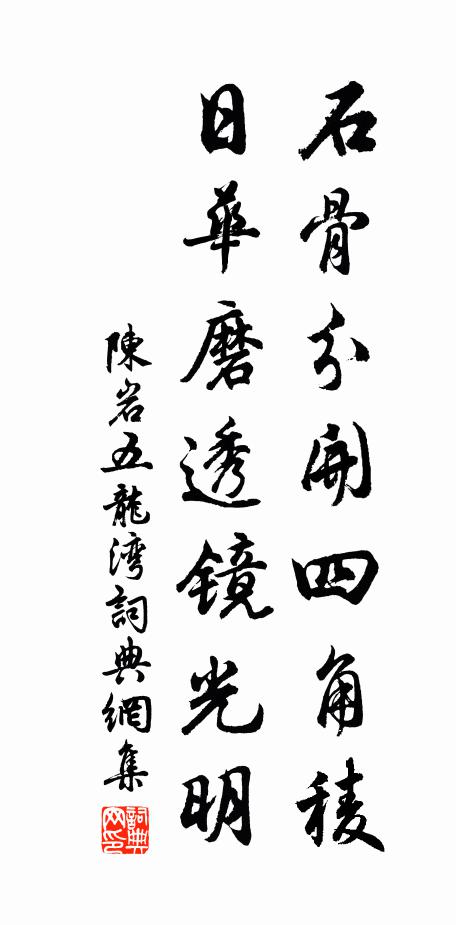 石骨分開四角稜
日華磨透鏡光明
陳岩五龍湾詞典網集
詞典网印